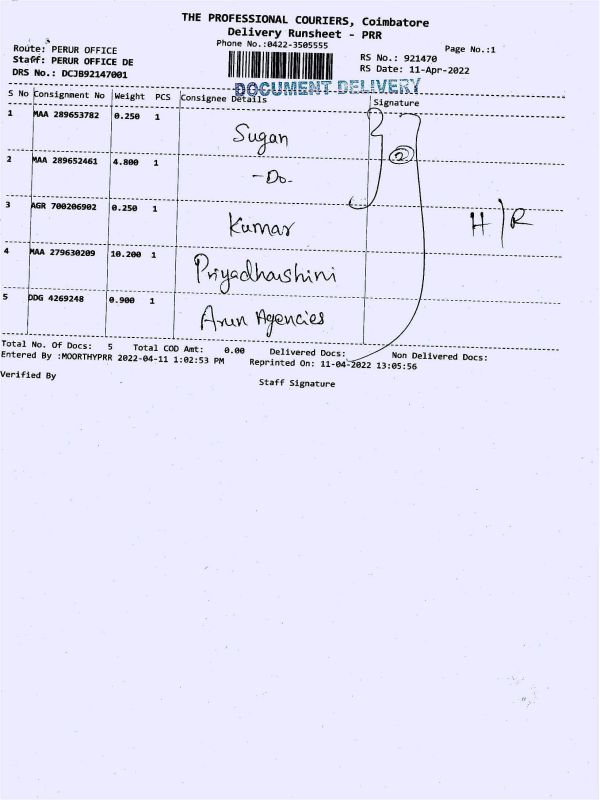 THE PROFESSIONAL COURIERS, Coimbatore
Delivery Runsheet - PRR
Phone No.:0422-3505555
Page No.:1
Route: PERUR OFFICE
RS No.: 921470
Staff: PERUR OFFICE DE
RS Date: 11-Apr-2022
DRS No.: DCJB92147001
DOCUMENT DELIVERY
S No Consignment No Weight PCS Consignee Details Signature
1 MAA 289653782 0.250 1 Sugan
2 MAA 289652461 4.800 1 -Do-
2
3 AGR 700206902 0.250 1 Kumar
H/R
4 MAA 279630209 10.200 1 Priyadharshini
5 DDG 4269248 0.900 1 Arun Agencies
Total No. Of Docs: 5 Total COD Amt: 0.00 Delivered Docs: Non Delivered Docs:
Entered By :MOORTHYPRR 2022-04-11 1:02:53 PM Reprinted On: 11-04-2022 13:05:56
Verified By Staff Signature